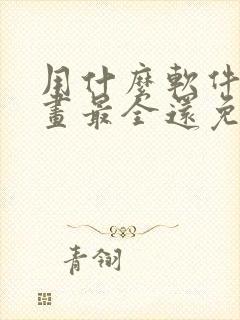 用什麼軟件
畫最全還免
青翎